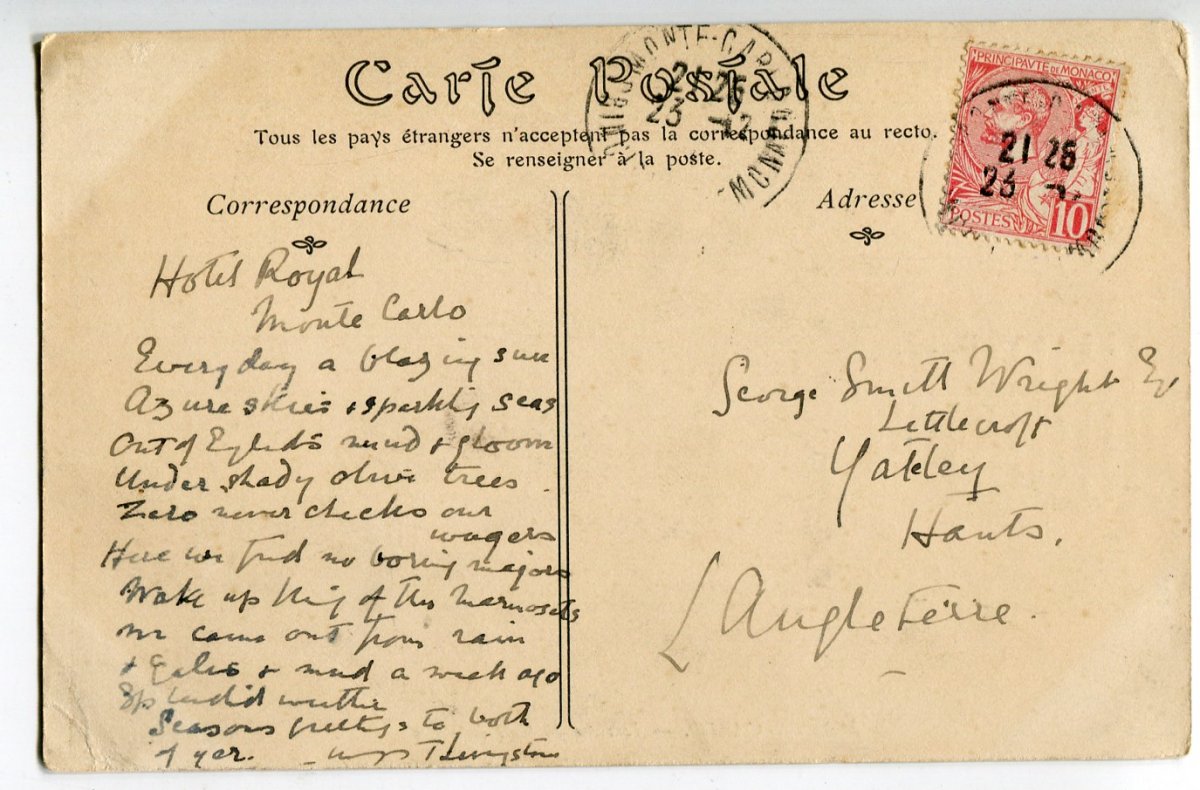 Carte Postale
Tous les pays étrangers n'acceptent pas la correspondance au recto.
Se renseigner à la poste.
Correspondance
Adresse
MONTE-CARLO
21 25
23 -12
MONACO
PRINCIPAVTE DE MONACO
21 25
23
POSTES 10
Hotel Royal
Monte Carlo
Every day a blazing sun
Azure skies & sparkling seas
Out of England's mud & gloom
Under shady olive trees
Zero never checks our
wagers
Here we find no boring majors
Wake up King of the Marmosets
We came out from rain
& gales & mud a week ago
Splendid weather
Seasons greetings to both
of yer. Livingston
George Smith Wright Esq
Littlecroft
Yateley
Hants.
L'Angleterre.